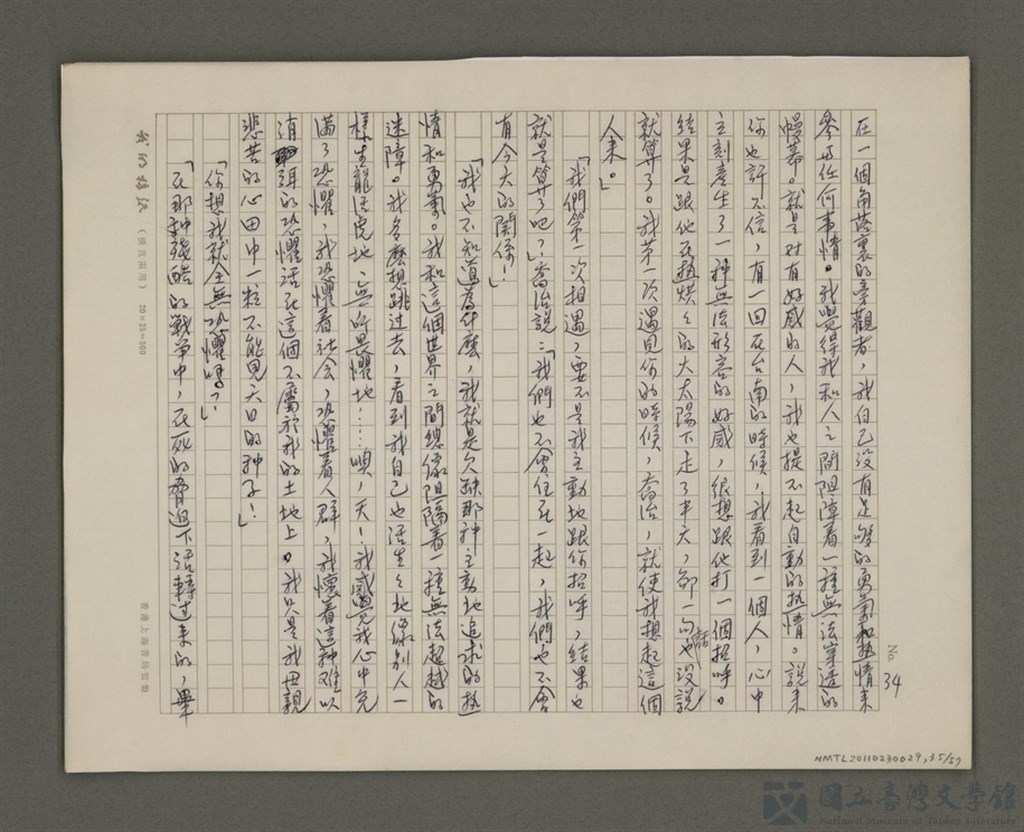 No. 34
在一個角落裏的旁觀者,我自己沒有足够的勇氣和热情来
參与任何事情。我覺得我和人之間阻障着一種無法穿透的
幔幕。就是对有好感的人,我也提不起自動的热情。說来
你也許不信,有一回在台南的時候,我看到一個人,心中
立刻產生了一种無法形容的好感,很想跟他打一個招呼。
結果是跟他在热烘々的大太陽下走了半天,卻一句話也沒說
就算了。我第一次遇見你的時候,喬治,就使我想起這個
人来。」
「我們第一次相遇,要不是我主動地跟你招呼,結果也
就是算了吧?」喬治說:「我們也不會住在一起,我們也不會
有今天的關係!」
「我也不知道為什麽,我就是欠缺那种主動地追求的热
情和勇氣。我和這個世界之間總像阻隔着一種無法超越的
迷障。我多麽想跳过去,看到我自己也活生々地像別人一
樣生龍活虎地、無所畏懼地……唄,天!我感覺我心中充
滿了恐懼,我恐懼着社会,恐懼着人群,我懷着這种难以
消弭的恐懼活在這個不屬於我的土地上。我只是我母親
悲苦的心田中一粒不能見天日的种子!」
「你想我就全無恐懼嗎?」
「在那种殘酷的戰爭中,在死的脅迫下活轉过来的,畢
我的稿紙 (橫直兩用) 20×25=500
香港上海書局監製
NMTL20110230029,35/57
國立臺灣文學館
National Museum of Taiwan Literature